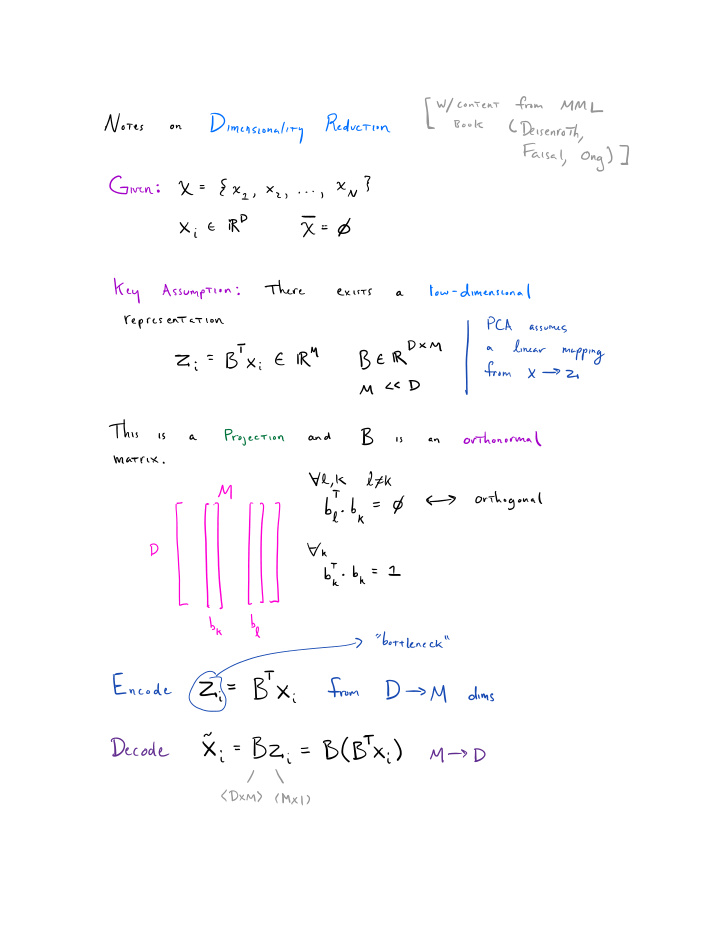 Notes on Dimensionality Reduction [W/ content from MML
Book (Deisenroth,
Faisal, Ong)]
Given: X = {x₁, x₂, ..., x_N}
xᵢ ∈ ℝᴰ x̄ = ∅
Key Assumption: There exists a low-dimensional
representation
zᵢ = Bᵀxᵢ ∈ ℝᴹ B ∈ ℝᴰˣᴹ
M << D
PCA assumes
a linear mapping
from x → z
This is a Projection and B is an orthonormal
matrix.
M
D
b_k b_l
∀l,k l≠k
b_lᵀ · b_k = ∅ ⟷ orthogonal
∀k
b_kᵀ · b_k = 1
"bottleneck"
Encode zᵢ = Bᵀxᵢ from D → M dims
Decode x̃ᵢ = Bzᵢ = B(Bᵀxᵢ) M → D
<DxM> (Mx1)